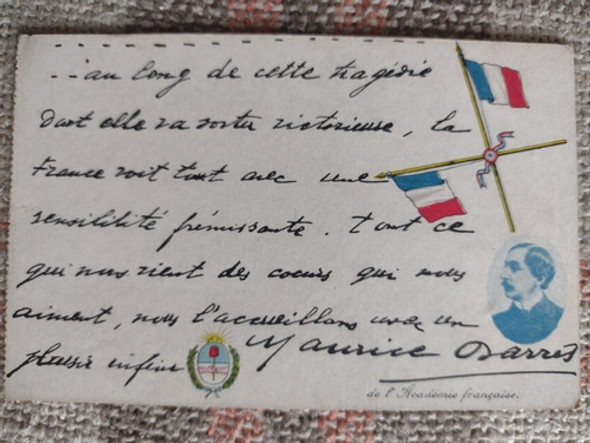 ...au long de cette tragédie
Dont elle va sortir victorieuse, la
France voit tout avec une
sensibilité frémissante. Tout ce
qui nous vient des coeurs qui nous
aiment, nous l'accueillons avec un
plaisir infini
Maurice Barrès
de l'Académie française.